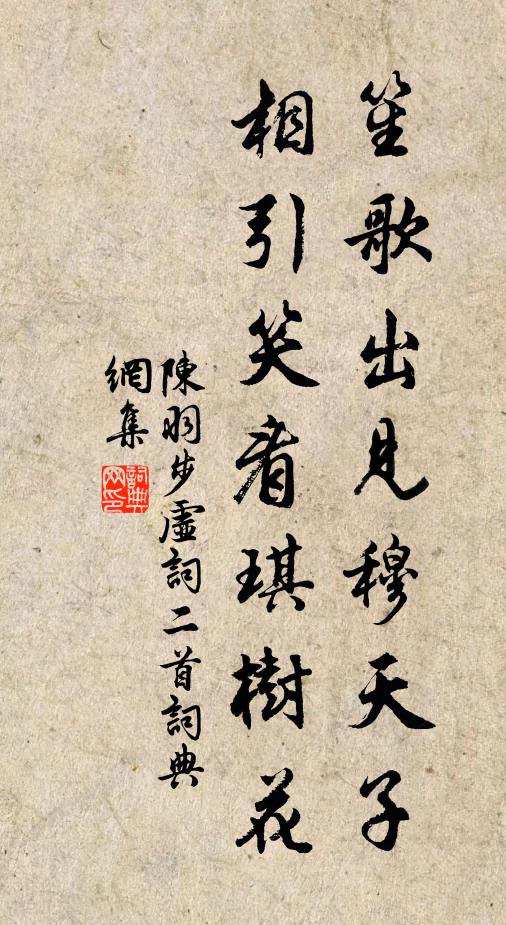 笙歌出見穆天子
相引笑看琪樹花
陳羽步虛詞二首詞典
網集
詞典
网印